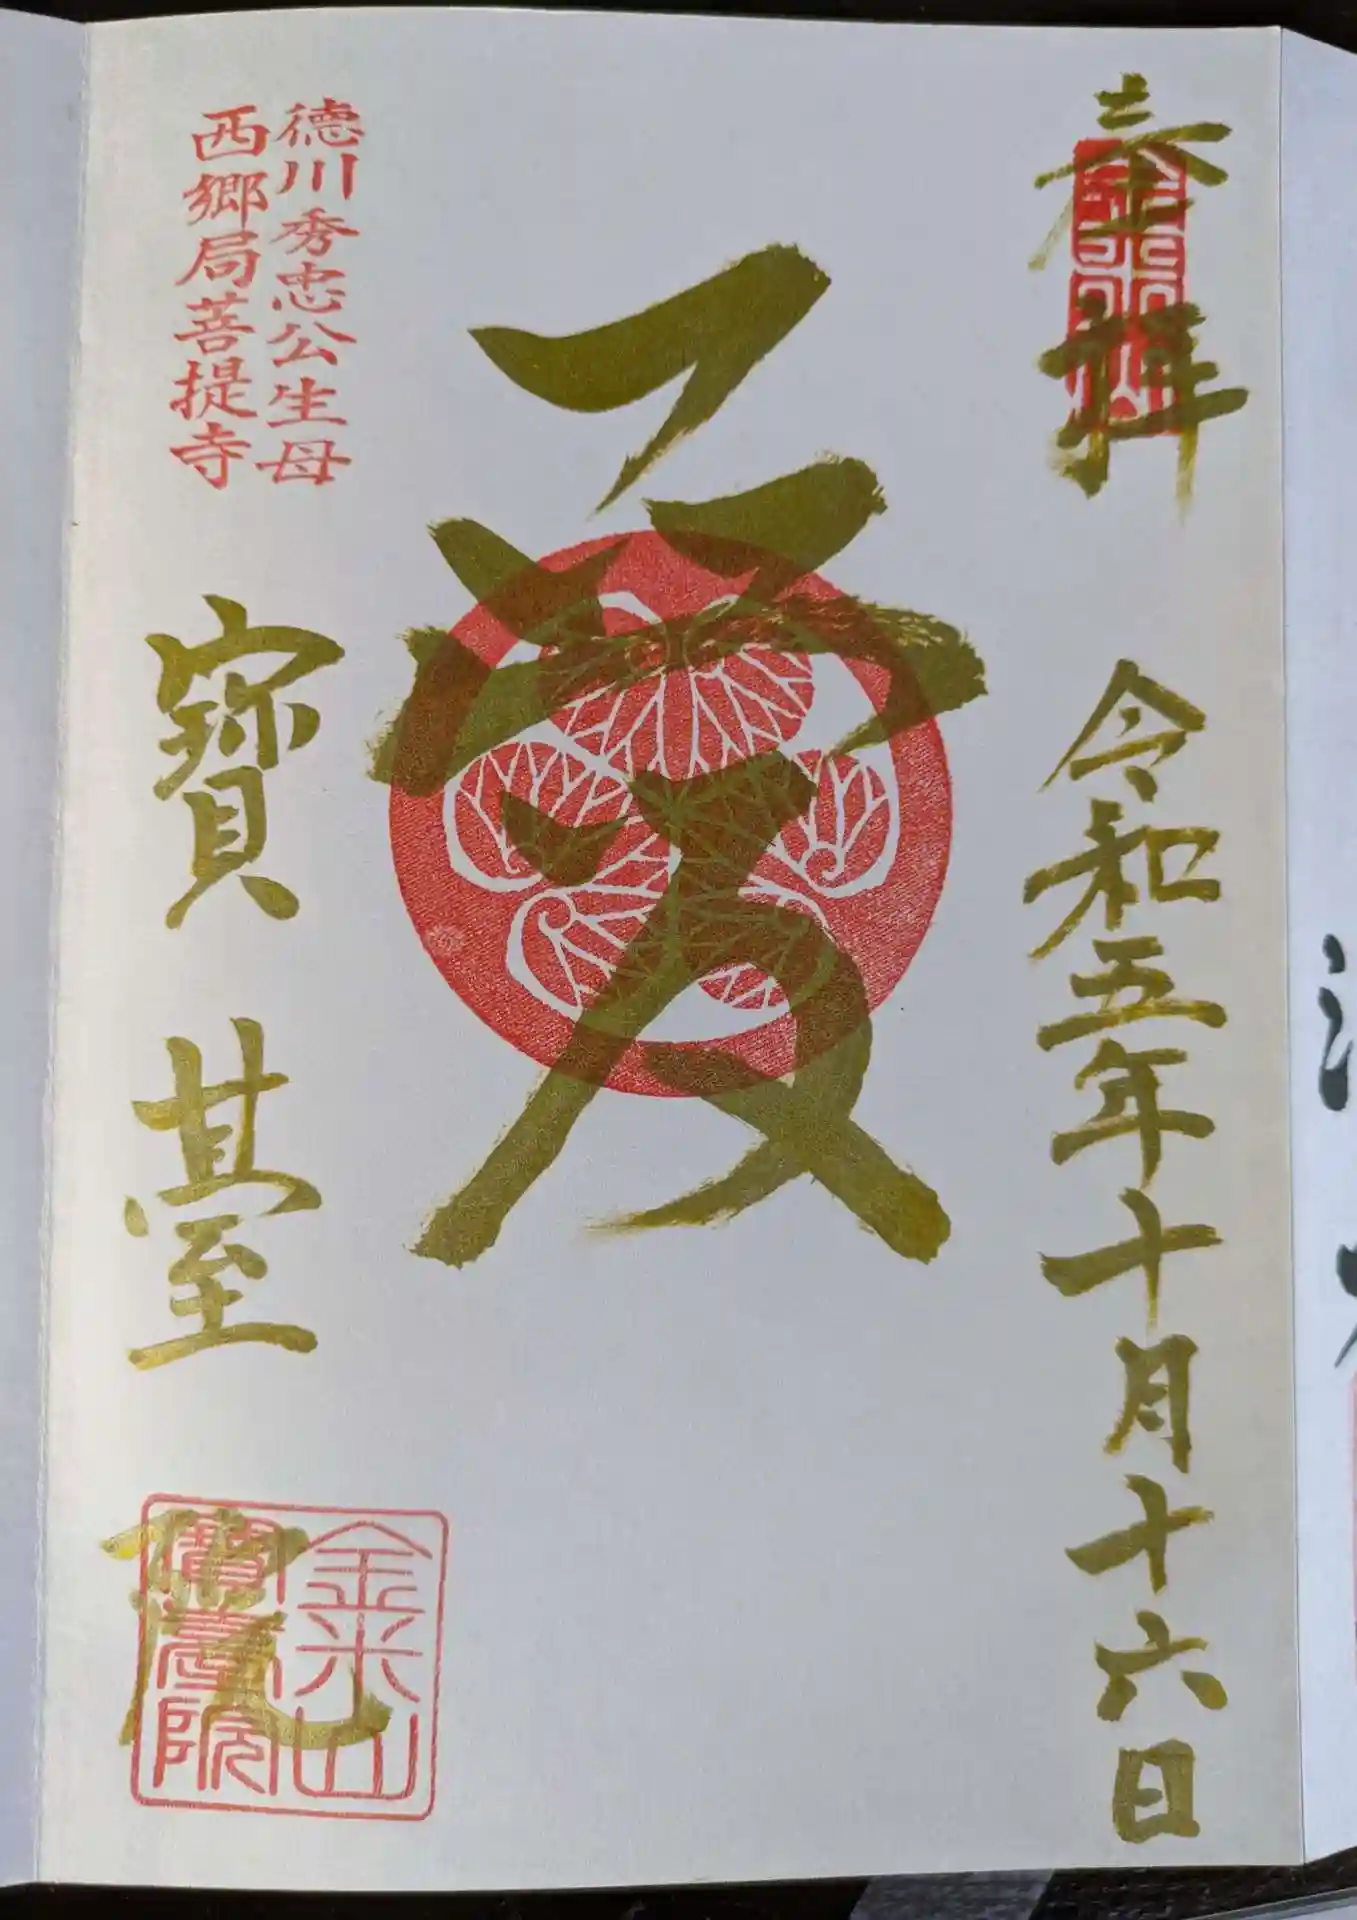 奉拝
金米山
令和五年十月十六日
愛
徳川秀忠公生母
西郷局菩提寺
寶臺院
金米山
寶臺院